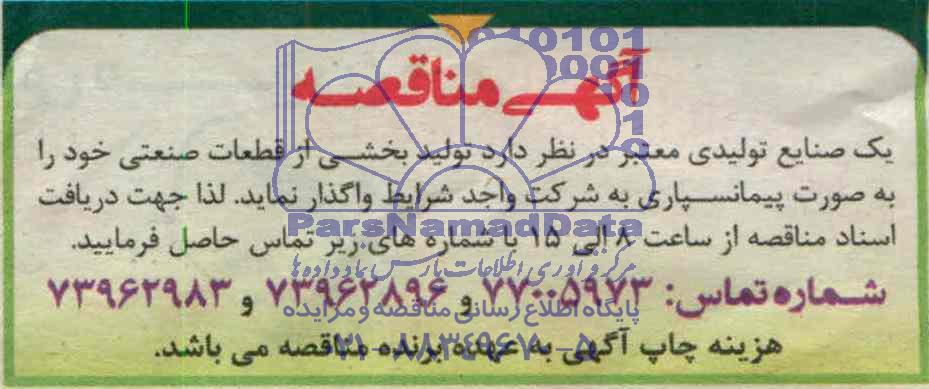 آگهی مناقصه
یک صنایع تولیدی معتبر در نظر دارد تولید بخشی از قطعات صنعتی خود را
به صورت پیمانسپاری به شرکت واجد شرایط واگذار نماید. لذا جهت دریافت
اسناد مناقصه از ساعت ۸ الی ۱۵ با شماره های زیر تماس حاصل فرمایید.
شماره تماس: ۷۷۰۰۵۹۷۳ و ۷۳۹۶۲۸۹۶ و ۷۳۹۶۲۹۸۳
هزینه چاپ آگهی به عهده برنده مناقصه می باشد.
ParsNamadData
مرکز فرآوری اطلاعات پارس نماد داده ها
پایگاه اطلاع رسانی مناقصه و مزایده
۰۲۱-۸۸۳۴۹۶۷۰-۵